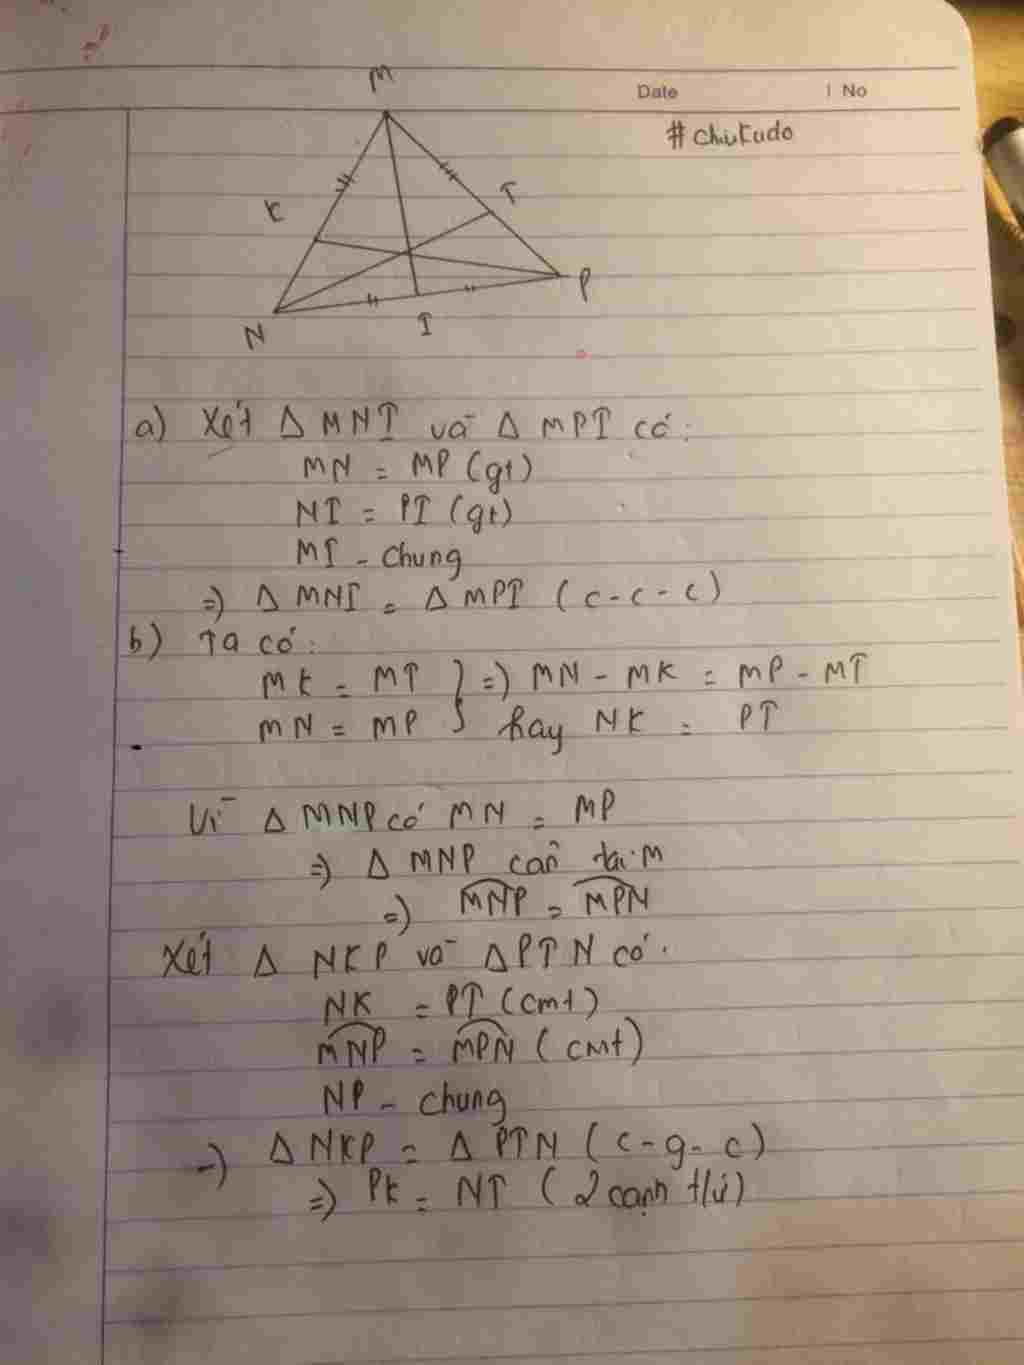 M
Date | No
#chiikudo
K
T
P
N
I
a) Xét Δ MNI và Δ MPI có:
MN = MP (gt)
NI = PI (gt)
MI - chung
=) Δ MNI = Δ MPI (c-c-c)
b) Ta có:
MK = MT } =) MN - MK = MP - MT
MN = MP } hay NK = PT
Vì Δ MNP có MN = MP
=) Δ MNP cân tại M
=) MNP = MPN
Xét Δ NKP và ΔPTN có.
NK = PT (cmt)
MNP = MPN (cmt)
NP - chung
=) Δ NKP = Δ PTN (c-g-c)
=) PK = NT (2 cạnh t/ứ)